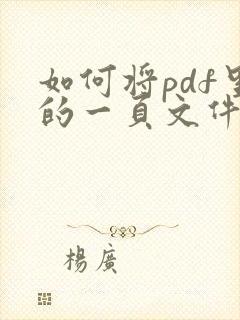 如何将pdf里
的一頁文件
楊廣